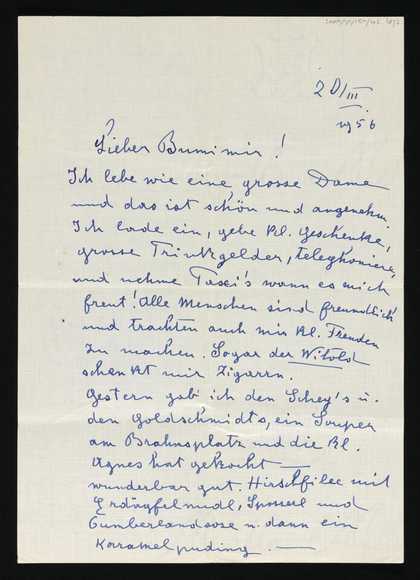 20/III
1956
Lieber Bumimir!
Ich lebe wie eine grosse Dame
und das ist schön und angenehm.
Ich lade ein, gebe kl. Geschenke,
grosse Trinkgelder, telephoniere,
und nehme Taxi's wann es mich
freut! Alle Menschen sind freundlich
und trachten auch mir kl. Freuden
zu machen. Sogar der Witold
schenkt mir Zigarrn.
Gestern gab ich den Schey's u.
den Goldschmidts, ein Souper
am Brahmsplatz und die kl.
Agnes hat gekocht —
wunderbar gut Hirschfilee mit
Erdäpfelnudl, und
Cumberlandsose u. dann ein
Karamelpuding. —